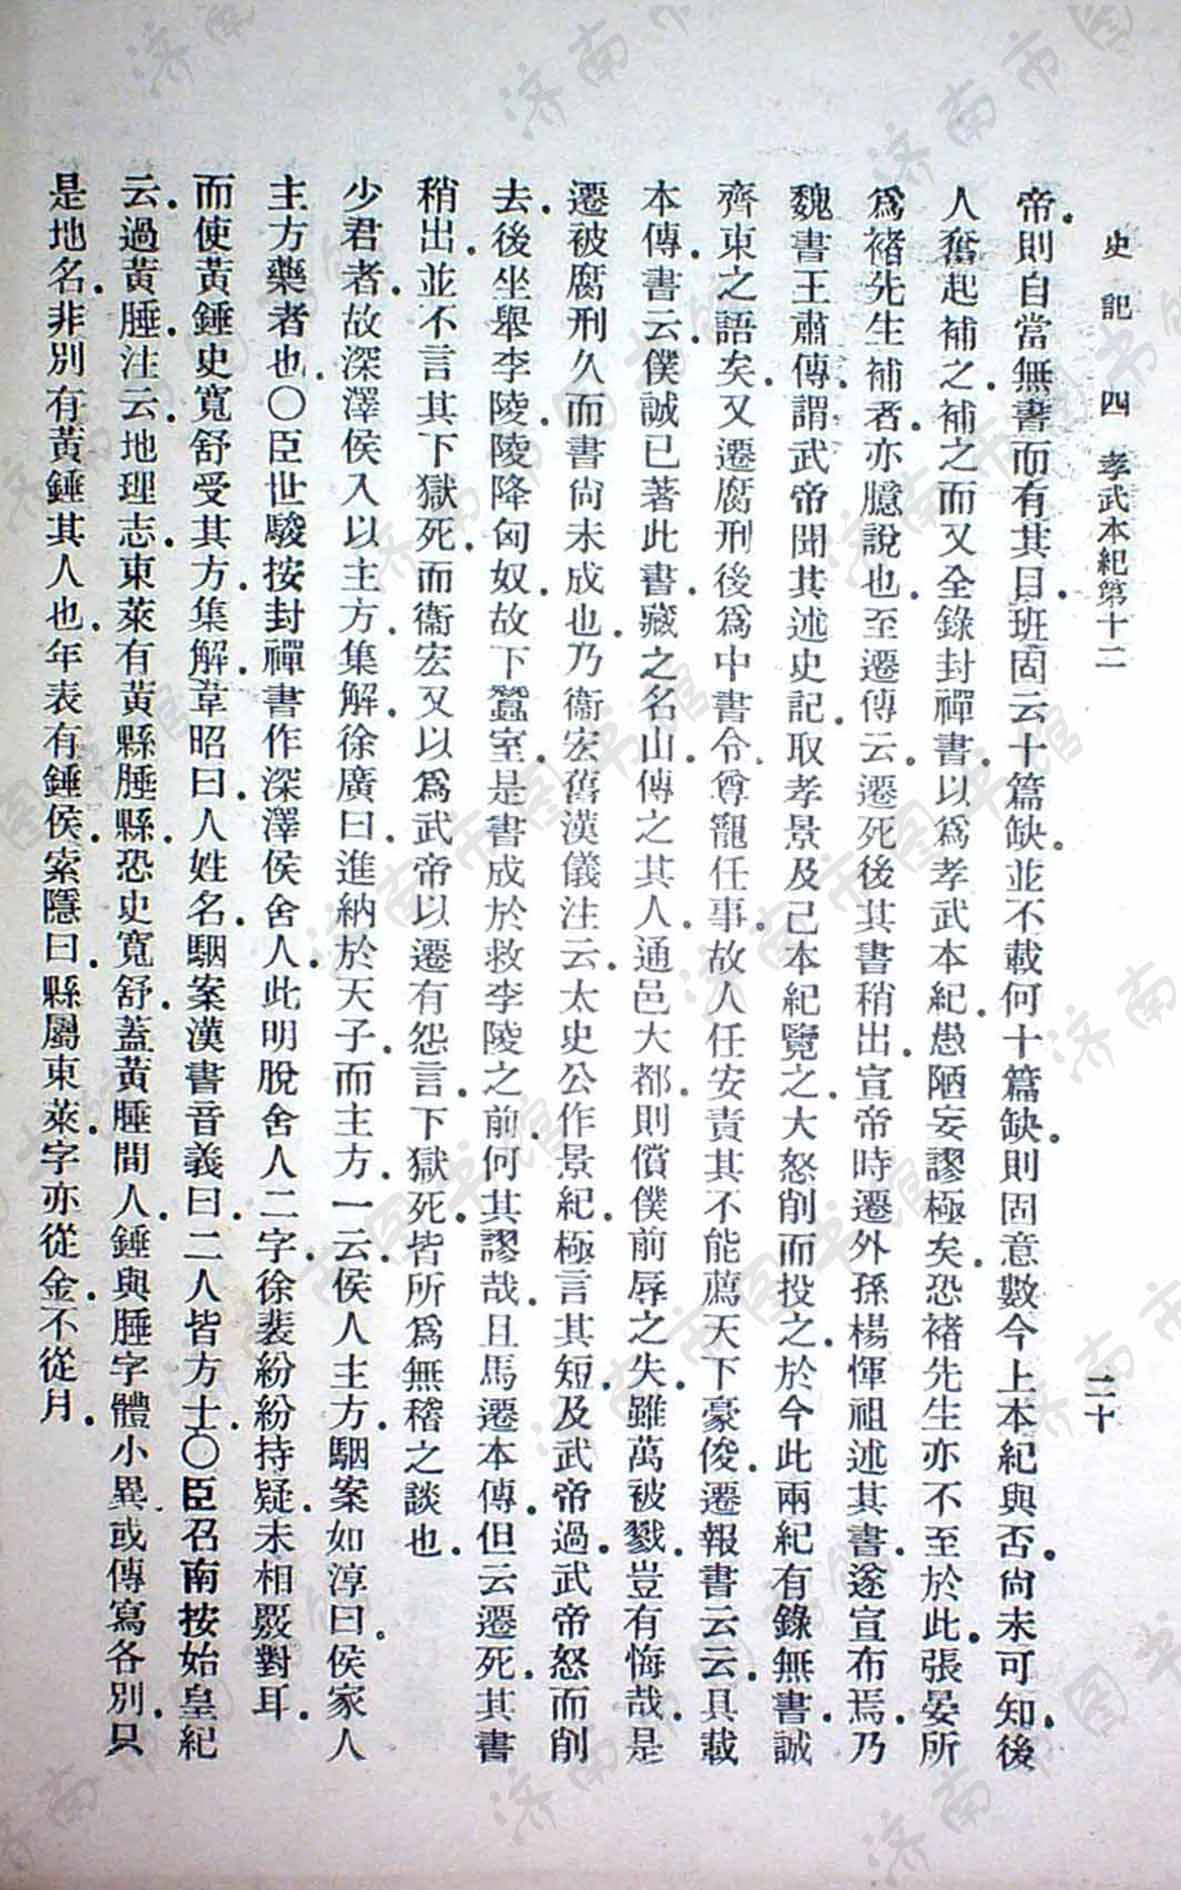 史記 四 孝武本紀第十二 二十
帝。則自當無書而有其目。班固云十篇缺。並不載何十篇缺。則固意數今上本紀與否。尙未可知。後
人奮起補之。補之而又全錄封禪書。以爲孝武本紀。愚陋妄謬極矣。恐褚先生亦不至於此。張晏所
爲褚先生補者。亦臆說也。至遷傳云。遷死後其書稍出。宣帝時遷外孫楊惲祖述其書。遂宣布焉。乃
魏書王肅傳。謂武帝聞其述史記。取孝景及己本紀覽之。大怒削而投之。於今此兩紀有錄無書。誠
齊東之語矣。又遷腐刑後爲中書令。尊寵任事。故人任安責其不能薦天下豪俊。遷報書云云。具載
本傳。書云。僕誠已著此書。藏之名山。傳之其人。通邑大都。則償僕前辱之失。雖萬被戮。豈有悔哉。是
遷被腐刑久而書尙未成也。乃衞宏舊漢儀注云。太史公作景紀。極言其短。及武帝過。武帝怒而削
去。後坐舉李陵。陵降匈奴。故下蠶室。是書成於救李陵之前。何其謬哉。且馬遷本傳。但云遷死。其書
稍出。並不言其下獄死。而衞宏又以爲武帝以遷有怨言。下獄死。皆所爲無稽之談也。
少君者。故深澤侯入以主方。集解。徐廣曰。進納於天子。而主方。一云。侯人主方。駰案如淳曰。侯家人
主方藥者也。〇臣世駿按封禪書作深澤侯舍人。此明脫舍人二字。徐裴紛紛持疑。未相覈對耳。
而使黃錘史寬舒受其方。集解。韋昭曰。人姓名。駰案漢書音義曰。二人皆方士。〇臣召南按始皇紀
云。過黃腄。注云。地理志。東萊有黃縣腄縣。恐史寬舒。蓋黃腄間人。錘與腄字體小異。或傳寫各別。只
是地名。非別有黃錘其人也。年表有錘侯。索隱曰。縣屬東萊。字亦從金。不從月。